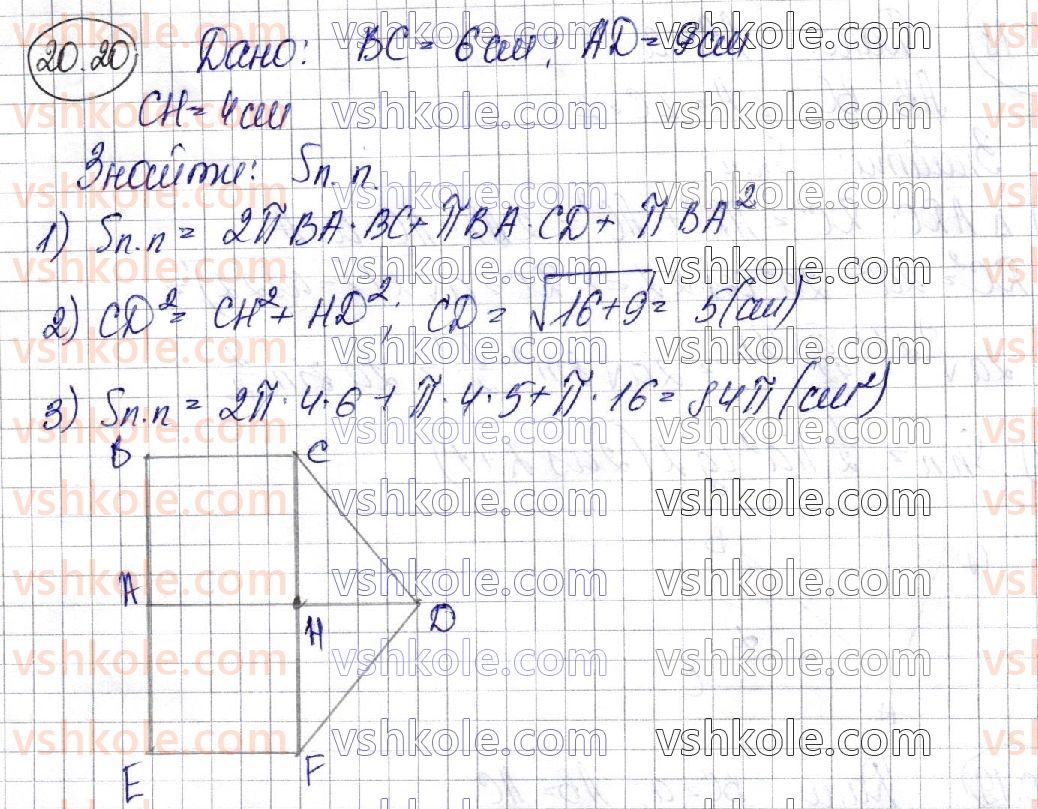 20.20 Дано: BC = 6см, AD = 9см
CH = 4см
Знайти: Sп.п.
1) Sп.п = 2π BA · BC + π BA · CD + π BA²
2) CD² = CH² + HD²; CD = √16+9 = 5(см)
3) Sп.п = 2π · 4 · 6 + π · 4 · 5 + π · 16 = 84π (см²)
B C
A H D
E F
vshkole.com